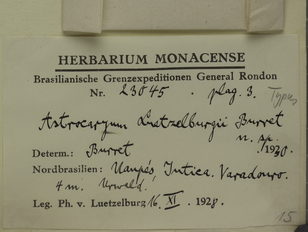 HERBARIUM MONACENSE
Brasilianische Grenzexpeditionen General Rondon
Nr. 23045. plag. 3. Typus
Astrocaryum Luetzelburgii Burret
n. sp.
Determ.: Burret 1930.
Nordbrasilien: Uaupés, Intica. Varadouro.
4 m. Urwald.
Leg. Ph. v. Luetzelburg 16. XI. 1928.
15